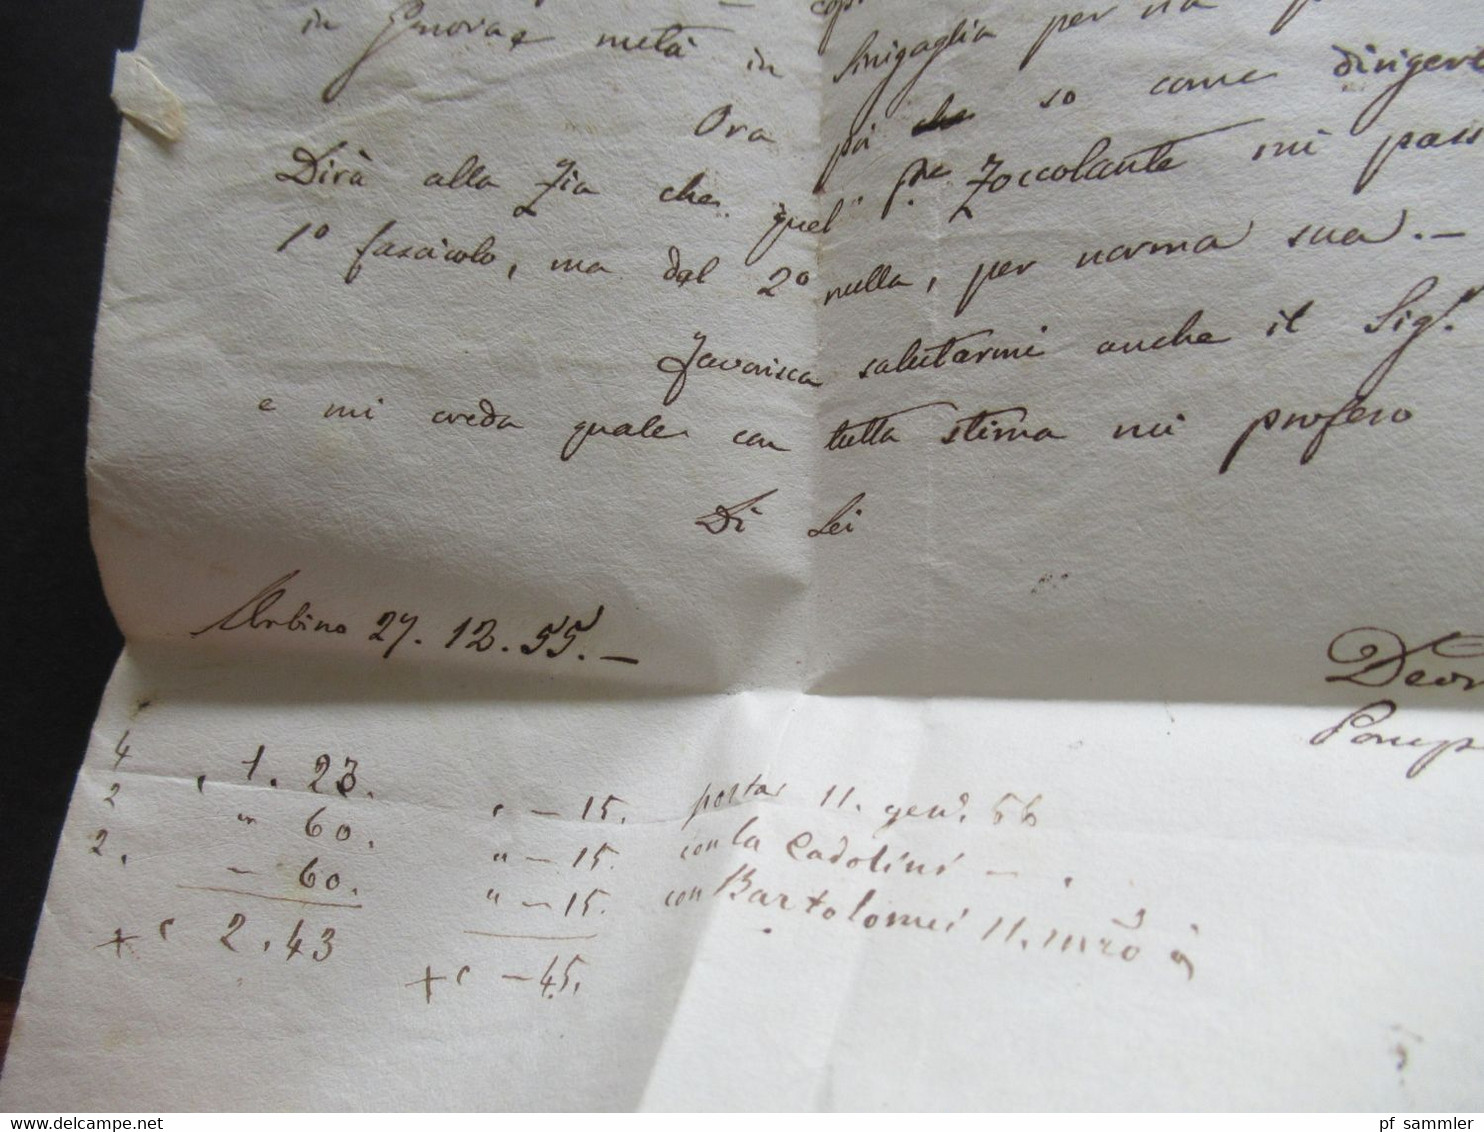 in Genova e metà in Sinigaglia per via
Ora più che so come dirigere
Dirà alla Zia che quel P.re Zoccolante mi pass
1º fascicolo, ma del 2º nulla, per norma sua. –
Favorisca salutarmi anche il Sig.
e mi creda quale con tutta stima mi profeso
Di Lei
Urbino 27. 12. 55. –
Devo
Pomp
4 1. 23. – 15. porta 11. gen. 56
2 " 60. " – 15. con la Cadolini – .
2. – 60. " – 15. con Bartolomei 11. mrzo
+ 2. 43 + – 45.
pf sammler